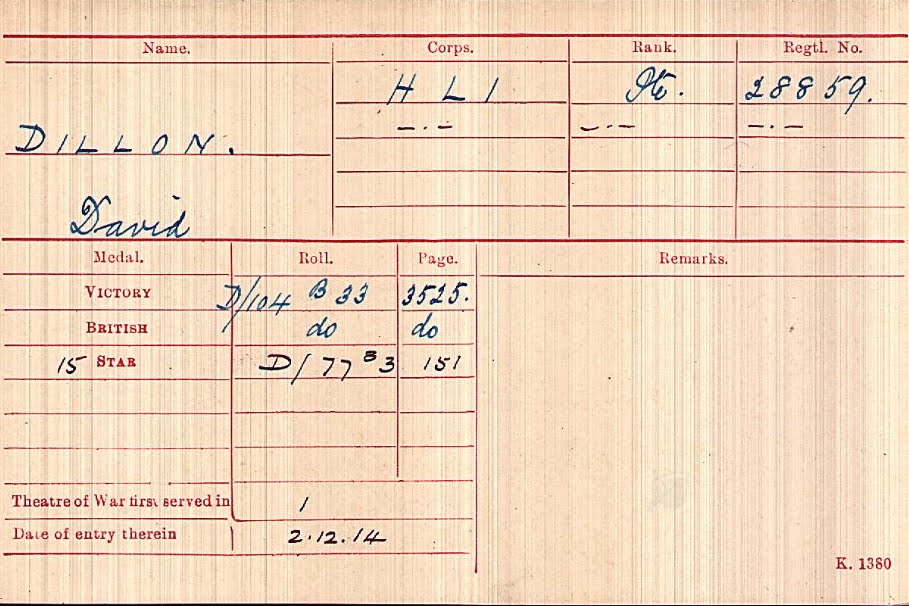 Name. Corps. Rank. Regtl. No.
H L I Pte. 28859.
DILLON. -.- -.- -.-
David
Medal. Roll. Page. Remarks.
VICTORY D/104 B 33 3525.
BRITISH do do
15 STAR D/77 B3 151
Theatre of War first served in 1
Date of entry therein 2.12.14
K. 1380